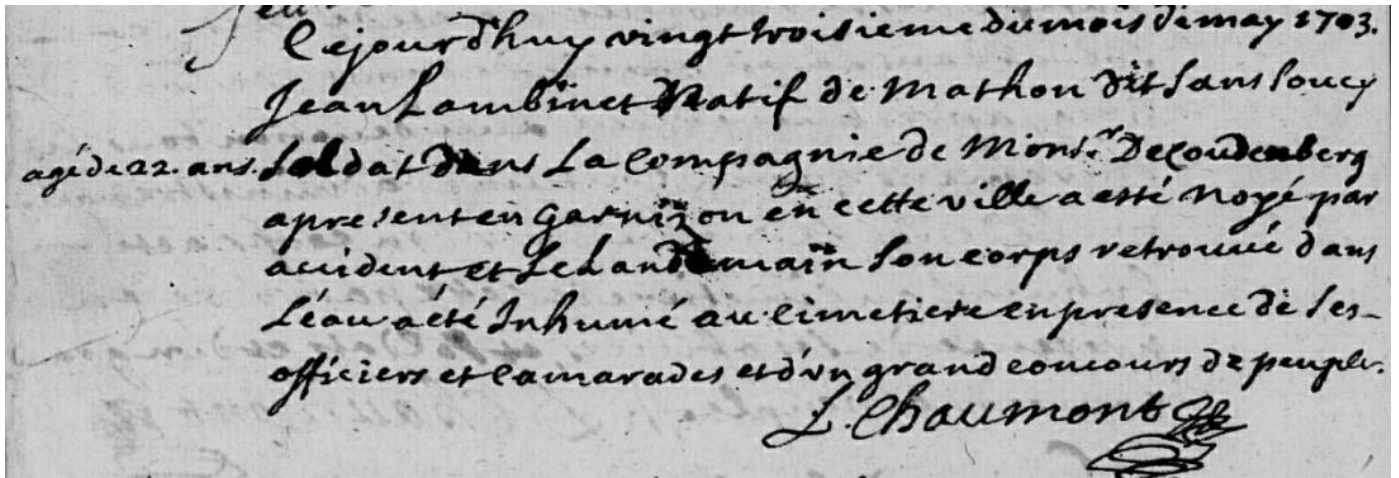 Cejourd'huy vingt troisieme du mois de may 1703.
Jean Lambinet Natif de Mathon dit sans soucy
agé de 22. ans. soldat dans La Compagnie de Mons.r Decoudenberg
apresent en garnizon en cette ville a esté noyé par
accident et le Landemain son corps retrouvé dans
L'éau a été Inhumé au cimetiere en presence de ses
officiers et Camarades et d'un grand concours de peuple.
L. Chaumont